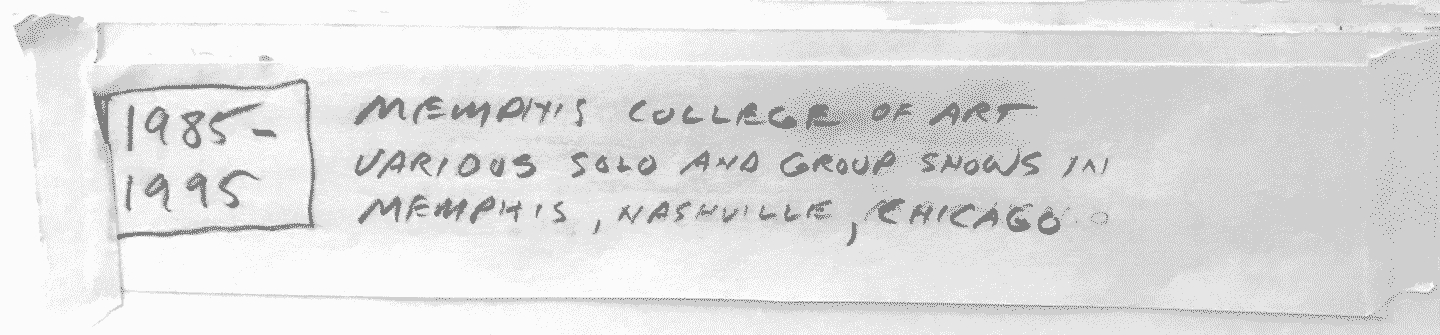 1985-
1995
MEMPHIS COLLEGE OF ART
VARIOUS SOLO AND GROUP SHOWS IN
MEMPHIS, NASHVILLE, CHICAGO